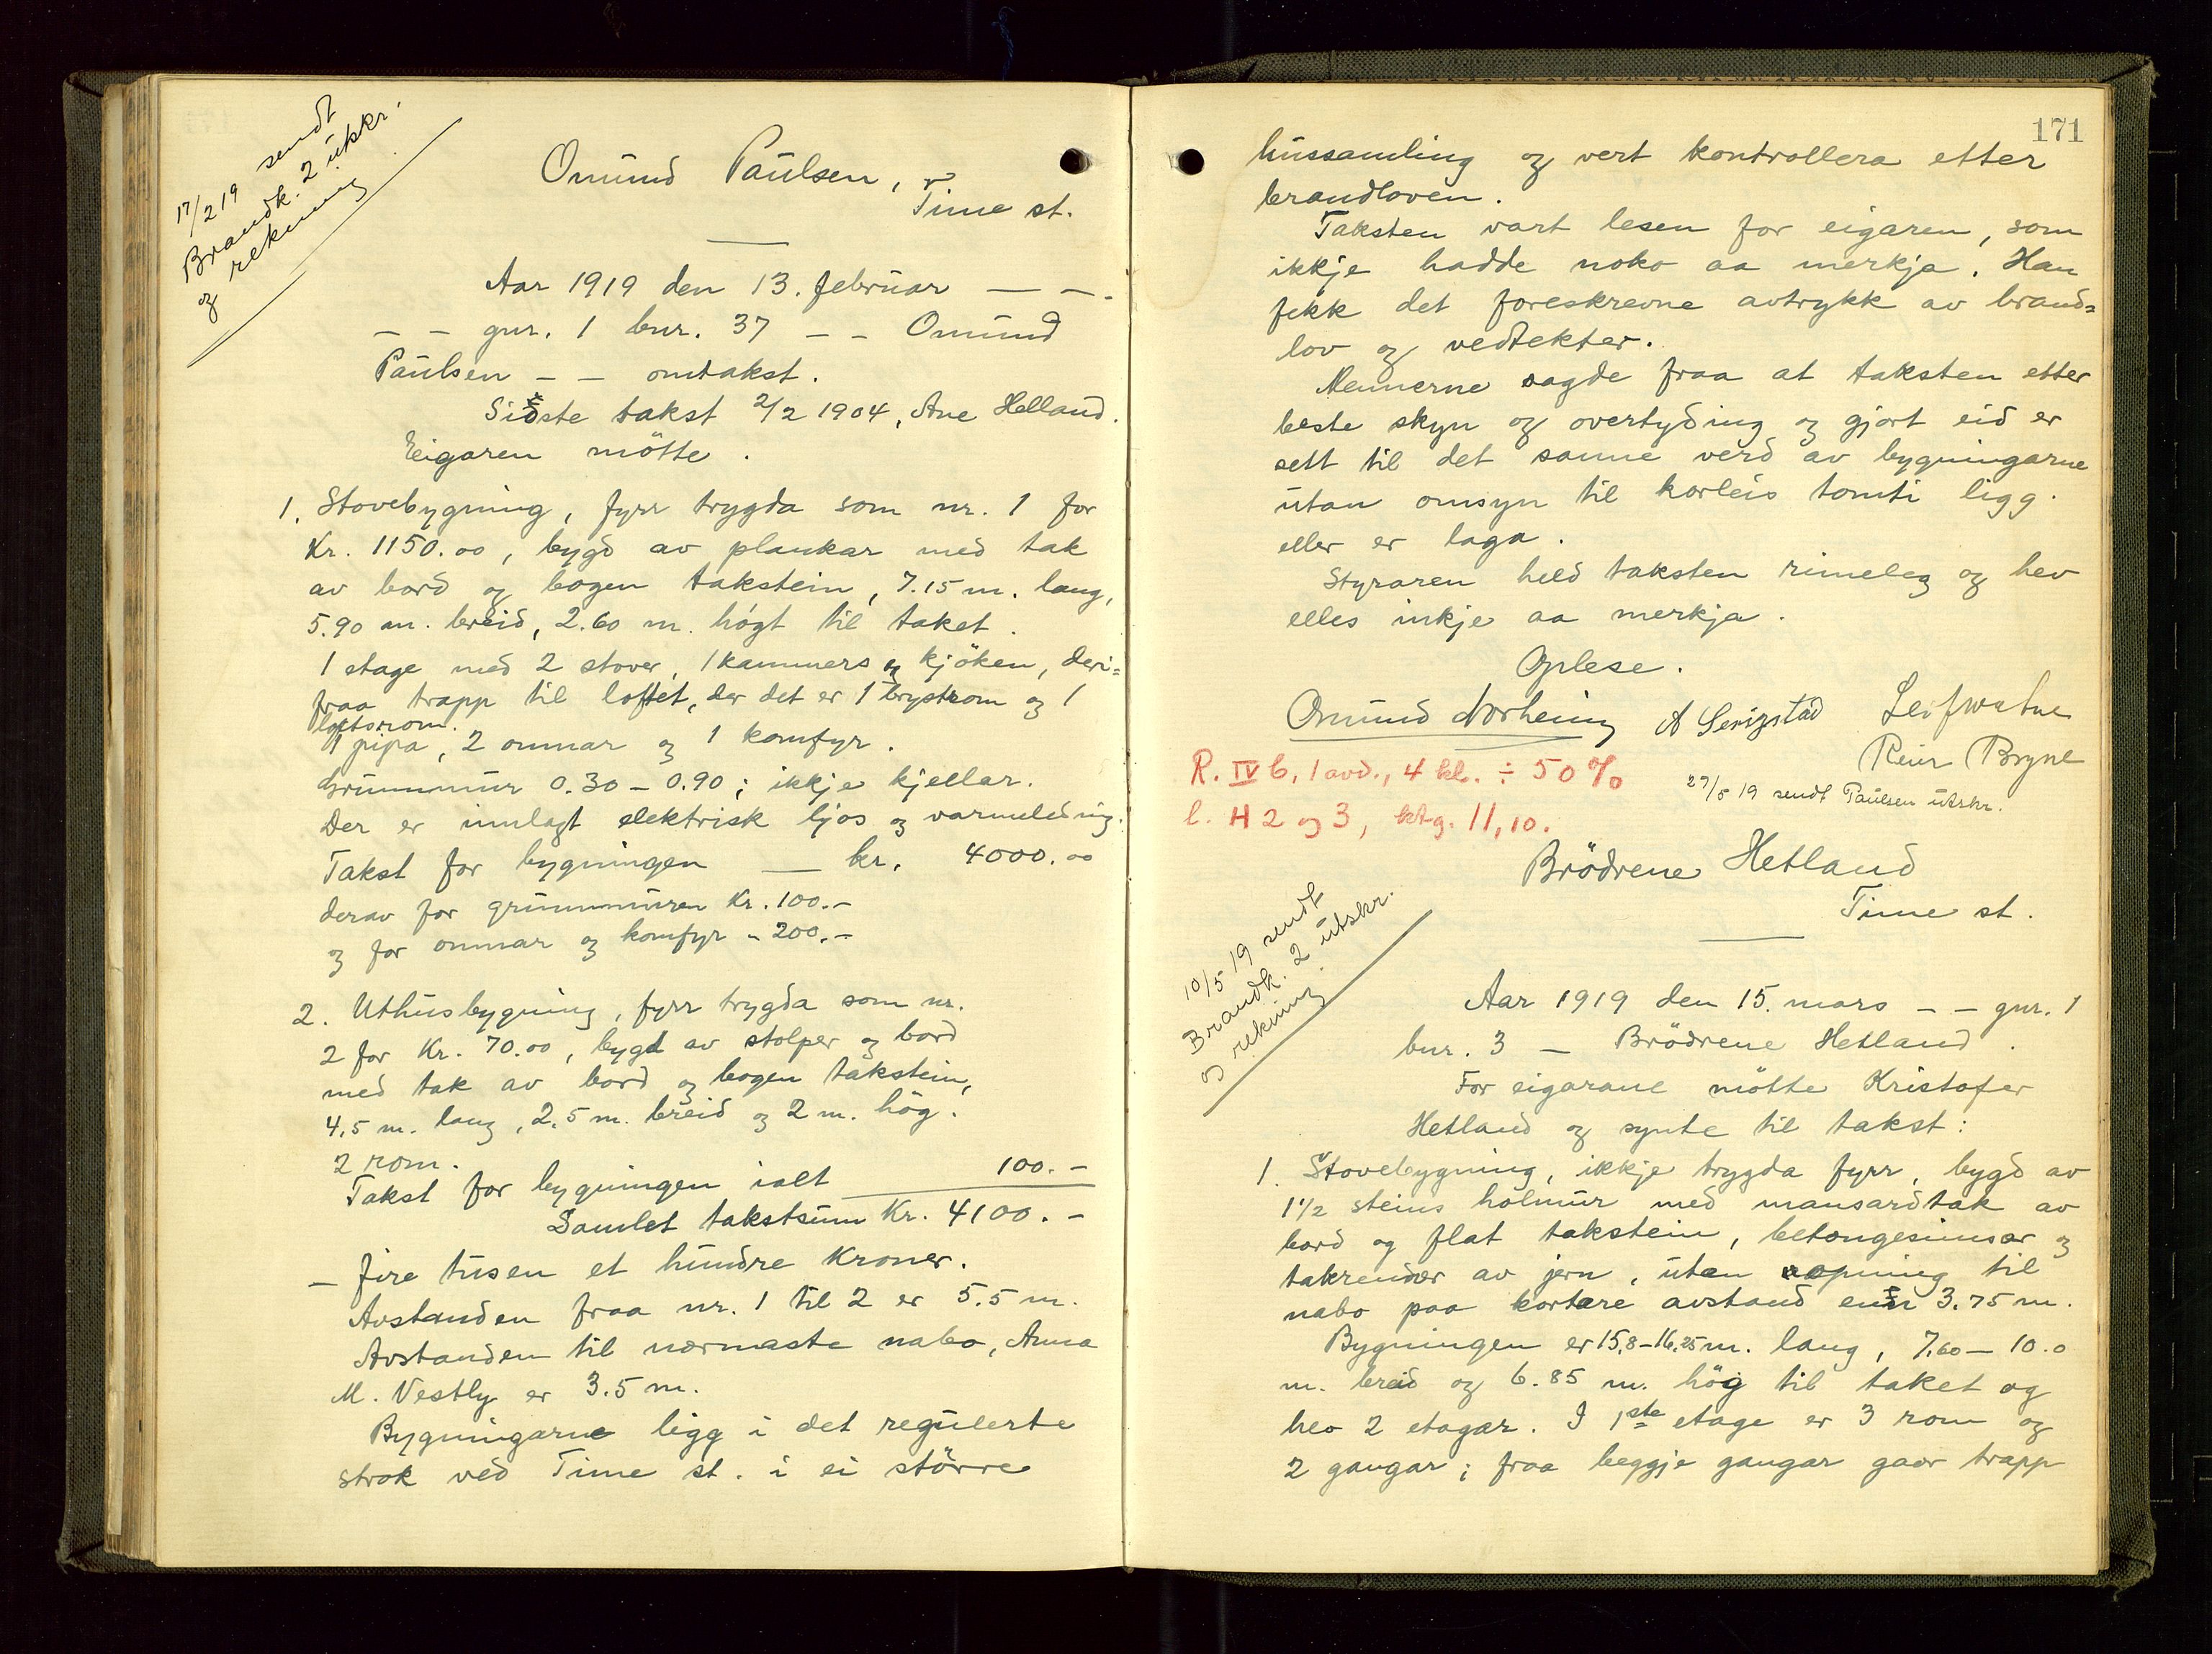 17/2 19 sendt
Brandk. 2 utskr.
og rekning
Omund Paulsen,
Time st.
Aar 1919 den 13. februar — –.
– – gnr. 1 bnr. 37 – – Omund
Paulsen – – omtakst.
Sidste takst 2/2 1904, Ane Helland.
Eigaren mötte.
1. Stovebygning, fyrr trygda som nr. 1 for
Kr. 1150.00, bygd av plankar med tak
av bord og bogen takstein, 7.15 m. lang,
5.90 m. breid, 2.60 m. högt til taket.
1 etage med 2 stover, 1 kammers og kjöken, deri=
fraa trapp til loftet, der det er 1 brystrom og 1
loftsrom.
1 pipa, 2 omnar og 1 komfyr.
Grunnmur 0.30 – 0.90; ikkje kjellar.
Der er innlagt elektrisk ljos og varmeledning.
Takst for bygningen — kr. 4000.00
derav for grunnmuren Kr. 100.–
og for omnar og komfyr " 200.–
2. Uthusbygning, fyrr trygda som nr.
2 for Kr. 70.00, bygd av stolper og bord
med tak av bord og bogen takstein,
4,5 m. lang, 2,5 m. breid og 2 m. hög.
2 rom.
Takst for bygningen ialt 100.–
Samlet takstsum Kr. 4100.–
– fire tusen et hundre kroner.
Avstanden fraa nr. 1 til 2 er 5.5 m.
Avstanden til nærmaste nabo, Anna
M. Vestly er 3.5 m.
Bygningarne ligg i det regulerte
strok ved Time st. i ei större
171
hussamling og vert kontrollera etter
brandloven.
Taksten vart lesen for eigaren, som
ikkje hadde noko aa merkja. Han
fekk det foreskrevne avtrykk av brand=
lov og vedtekter.
Mennerne sagde fraa at taksten etter
beste skyn og overtyding og gjort eid er
sett til det sanne verd av bygningarne
utan omsyn til korleis tomti ligg
eller er laga.
Styraren held taksten rimeleg og hev
elles inkje aa merkja.
Oplese.
Omund Norheim A Serigstad Leif Watne
Reier Bryne
R. IV b, 1 avd., 4 kl. ÷ 50 %
l. H 2 og 3, ktg. 11,10.
27/5 19 sendt Paulsen utskr.
Brödrene Hetland
Time st.
10/5 19 sendt
Brandk. 2 utskr.
og rekning
Aar 1919 den 15. mars – – gnr. 1
bnr. 3 – Brödrene Hetland.
For eigarane mötte Kristofer
Hetland og synte til takst:
1. Stovebygning, ikkje trygda fyrr, bygd av
1 1/2 steins holmur med mansardtak av
bord og flat takstein, betongesimser og
takrender av jern, utan opning til
nabo paa kortare avstand enn 3.75 m.
Bygningen er 15,8–16,25 m. lang, 7,60 – 10.0
m. breid og 6.85 m. hög til taket og
hev 2 etagar. I 1ste etage er 3 rom og
2 gangar; fraa beggje gangar gaar trapp